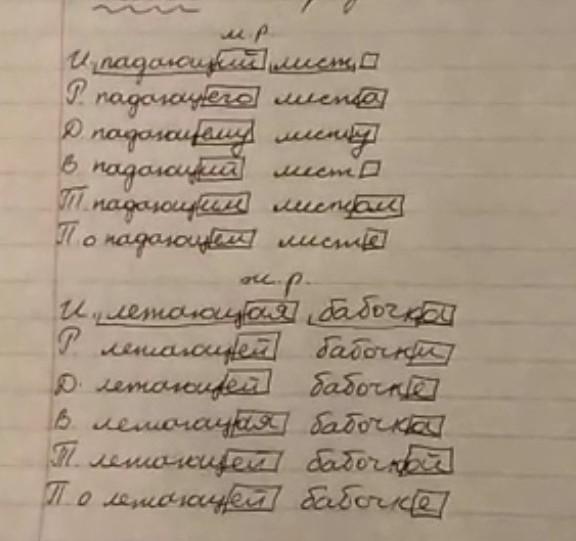 м.р.
И. падающий лист
Р. падающего листа
Д. падающему листу
В. падающий лист
Т. падающим листом
П. о падающем листе
ж.р.
И. летающая бабочка
Р. летающей бабочки
Д. летающей бабочке
В. летающая бабочка
Т. летающей бабочкой
П. о летающей бабочке